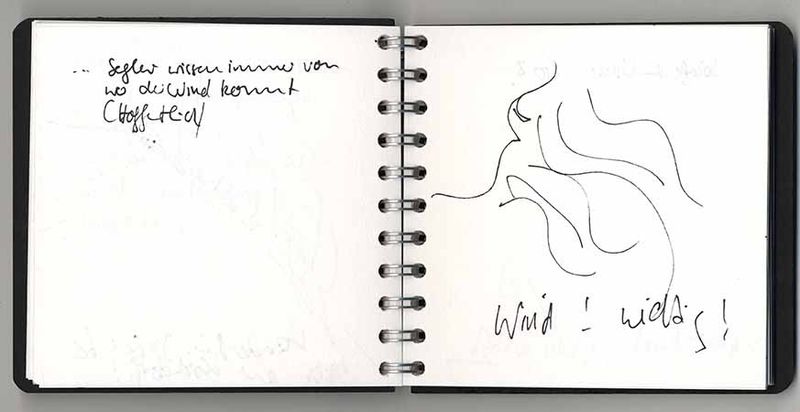 ... Segler wissen immer von
wo der Wind kommt
(Hoffentlich)
Wind ! wichtig !